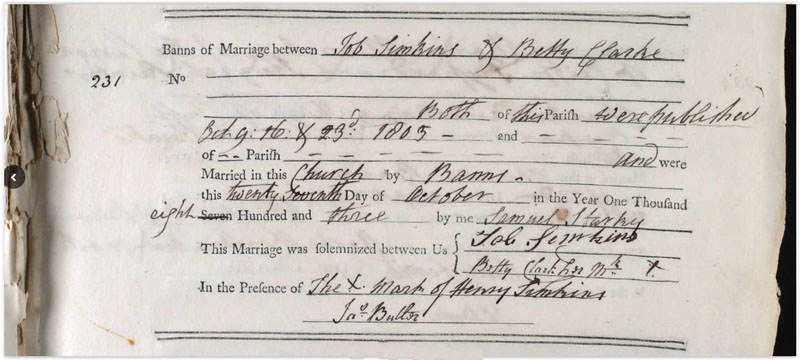 Banns of Marriage between Job Simkins & Betty Clarke
231 No
Both of this Parish were published
Oct 9. 16. & 23d. 1803 – and – – –
of – – Parish – – – – – – – and were
Married in this Church by Banns.
this twenty Seventh Day of October in the Year One Thousand
eight Seven Hundred and three by me Samuel Starky
This Marriage was solemnized between Us { Job Simkins
Betty Clark her Mk X.
In the Presence of The X Mark of Henry Simkins
Jno. Butler